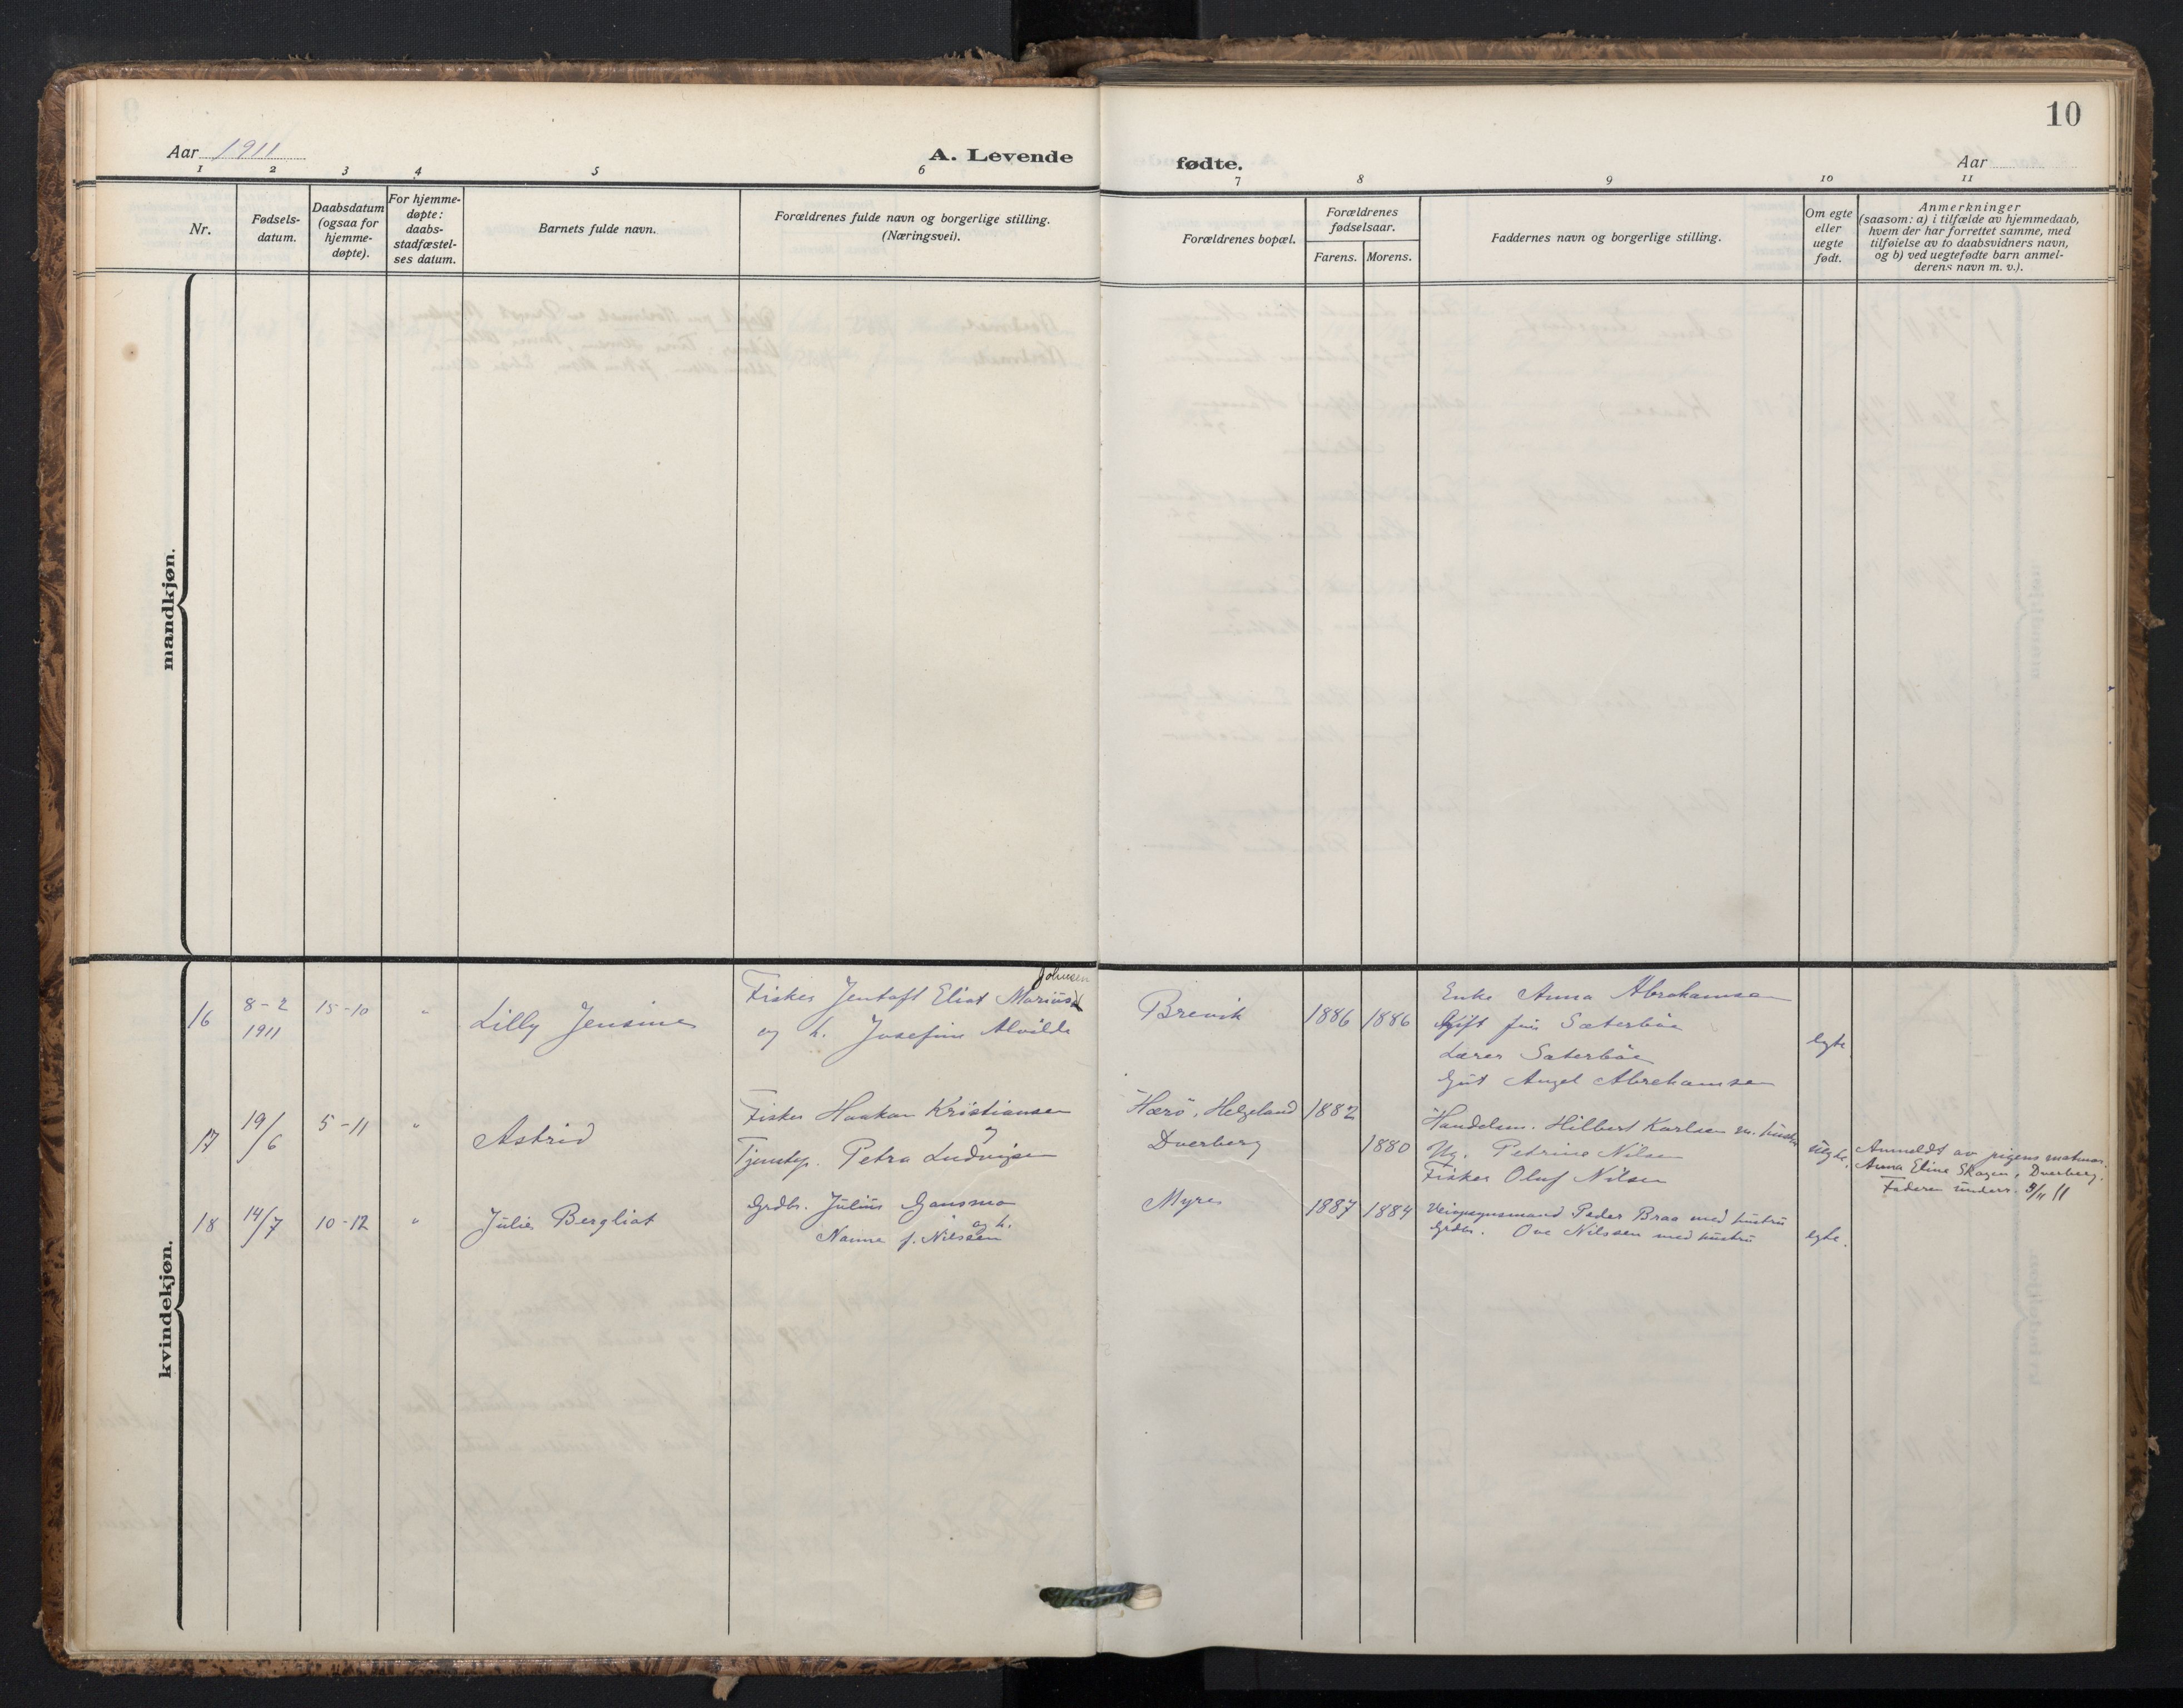 10
Aar 1911
A. Levende
fødte.
Aar
1 2 3 4 5 6 7 8 9 10 11
Nr.
Fødsels-
datum.
Daabsdatum
(ogsaa for
hjemme-
døpte).
For hjemme-
døpte:
daabs-
stadfæstel-
ses datum.
Barnets fulde navn.
Forældrenes fulde navn og borgerlige stilling.
(Næringsvei).
Forældrenes bopæl.
Forældrenes
fødselsaar.
Farens. Morens.
Faddernes navn og borgerlige stilling.
Om egte
eller
uegte
født.
Anmerkninger
(saasom: a) i tilfælde av hjemmedaab,
hvem der har forrettet samme, med
tilføielse av to daabsvidners navn,
og b) ved uegtefødte barn anmel-
derens navn m. v.).
mandkjøn.
kvindekjøn.
16
8-2
1911
15-10
"
Lilly Jensine
Johnsen
Fisker Jentoft Eliot Marius
og h. Josefine Alvilde
Brevik
1886 1886
Enke Anna Abrahamsen
Gift fru Sæterbøe
Lærer Sæterbøe
Gut Angel Abrahamsen
egte
17
19/6
5-11
"
Astrid
Fisker Haakon Kristiansen
og
Tjenstep. Petra Ludvigsen
Herö, Helgeland
Dverberg
1882
1880
Handelsm. Hilbert Karlsen m. hustru
Ug. Petrine Nilsen
Fisker Oluf Nilsen
uegte.
Anmeldt av pigens
Anna Eline Skogen, Dverberg.
Faderen underr. 8/11 11
18
14/7
10-12
"
Julie Bergliot
Grdbr. Julius Gansmo
og h.
Nanna f. Nilssen
Myre
1887 1884
Veiopsynsmand Peder Braa med hustru
Grdbr. Ove Nilssen med hustru
egte.